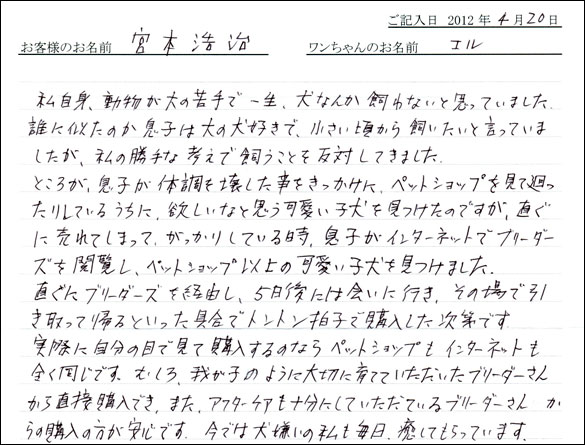 ご記入日 2012年4月20日
お客様のお名前 宮本浩治 ワンちゃんのお名前 エル
私自身、動物が大の苦手で一生、犬なんか飼わないと思っていました。
誰に似たのか息子は大の犬好きで、小さい頃から飼いたいと言っていま
したが、私の勝手な考えで飼うことを反対してきました。
ところが、息子が体調を壊した事をきっかけに、ペットショップを見て廻っ
たりしているうちに、欲しいなと思う可愛い子犬を見つけたのですが、直ぐ
に売れてしまって、がっかりしている時、息子がインターネットでブリーダー
ズを閲覧し、ペットショップ以上の可愛い子犬を見つけました。
直ぐにブリーダーズを経由し、5日後には会いに行き、その場で引
き取って帰るといった具合でトントン拍子で購入した次第です。
実際に自分の目で見て購入するのならペットショップもインターネットも
全く同じです。むしろ、我が子のように大切に育てていただいたブリーダーさん
から直接購入でき、また、アフターケアも十分にしていただているブリーダーさんか
らの購入の方が安心です。今では犬嫌いの私も毎日、癒してもらっています。